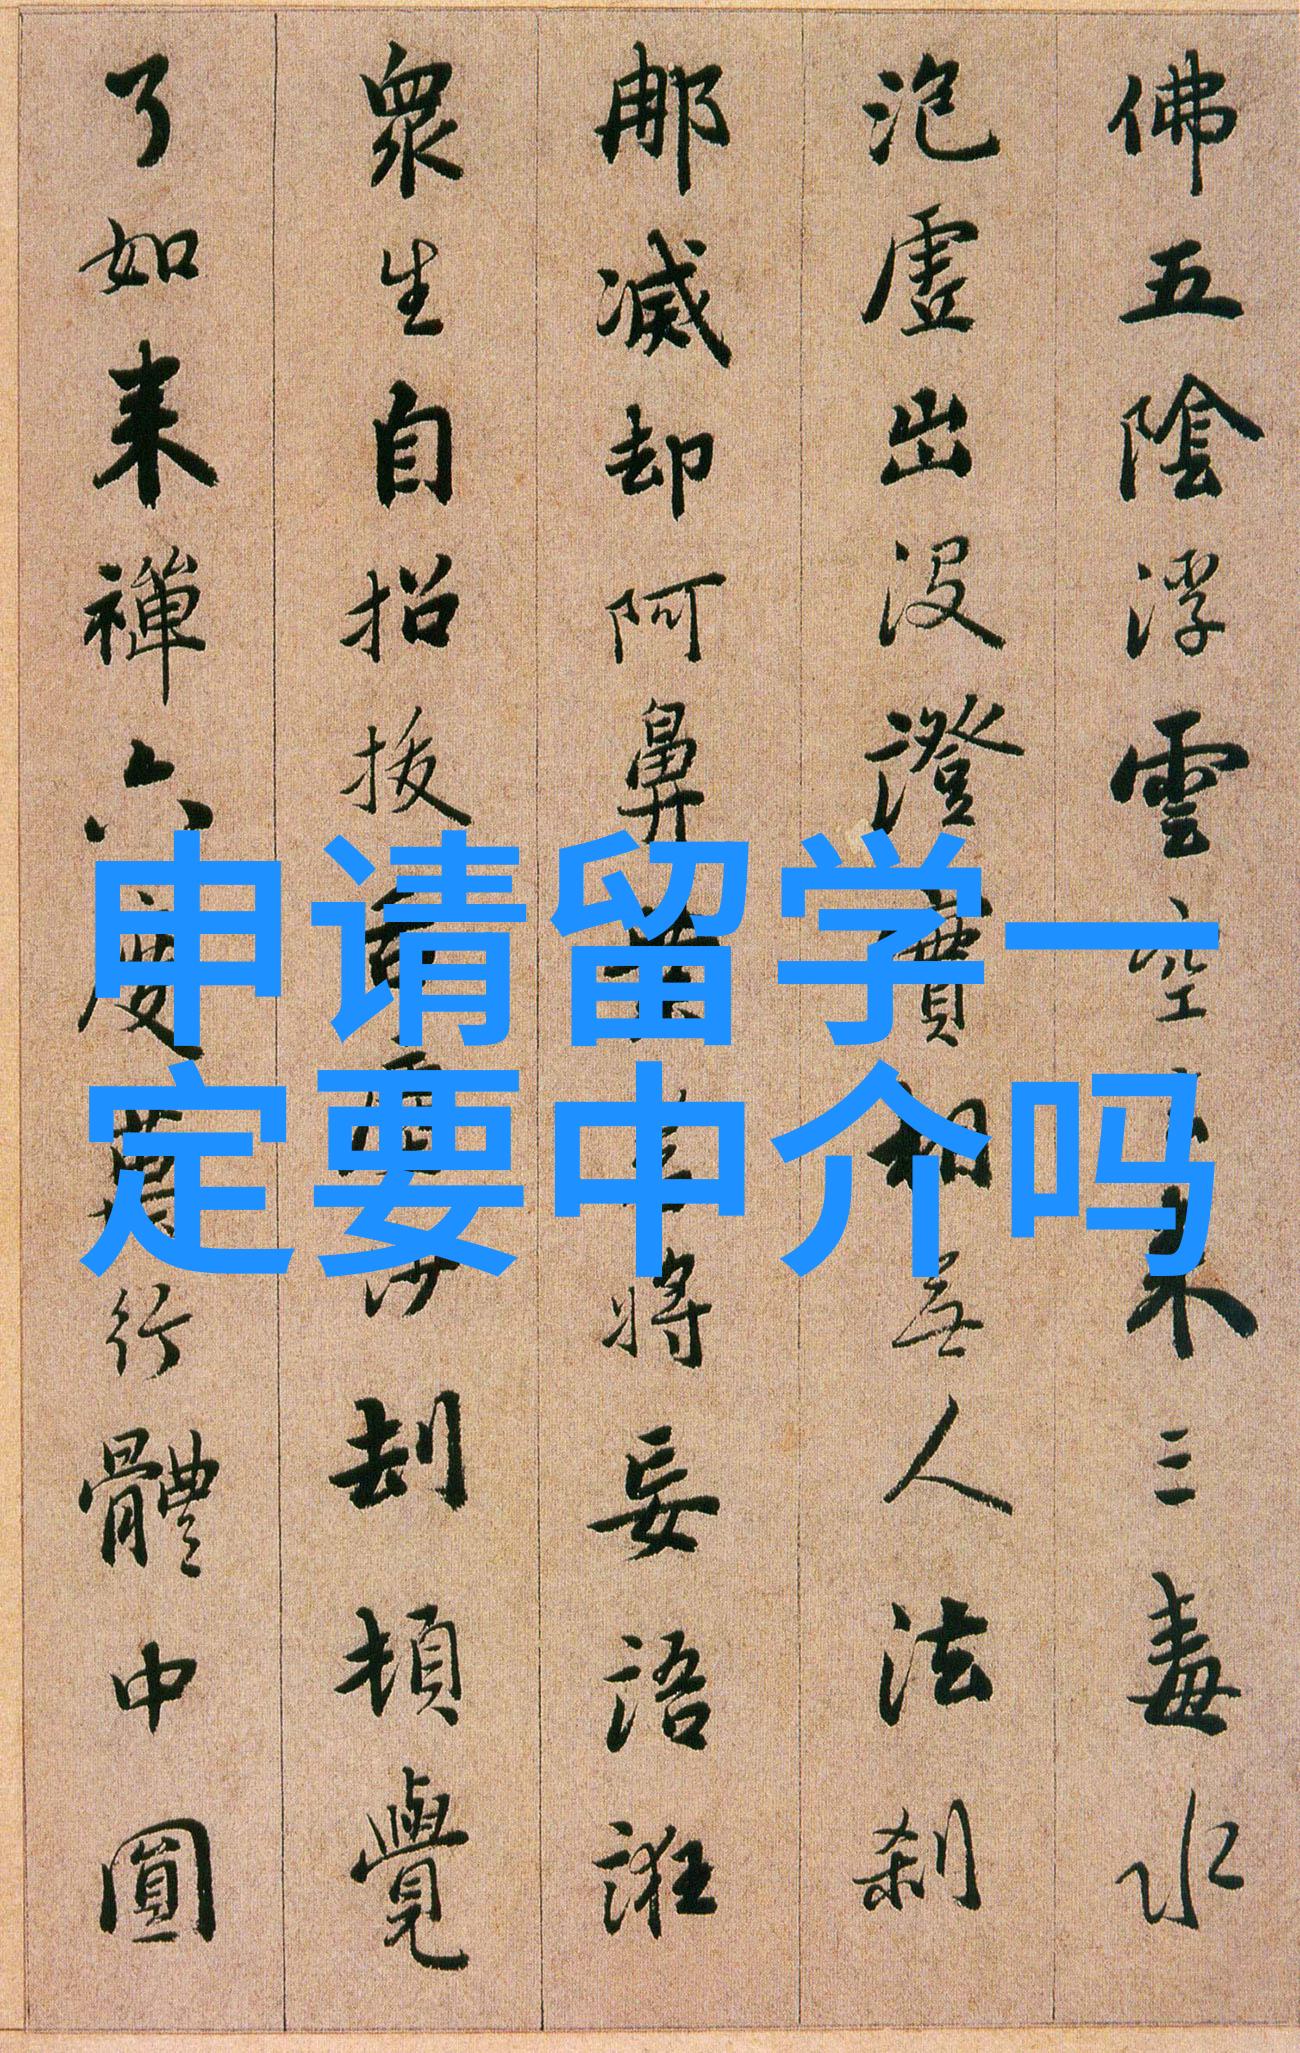 佛五陰浮雲空去來三毒水
泡虛出沒證實相無人法剎
那滅却阿鼻業若將妄語誑
衆生自招拔舌塵沙劫頓覺
了如來禪六度萬行體中圓
申请留学一
定要中介吗